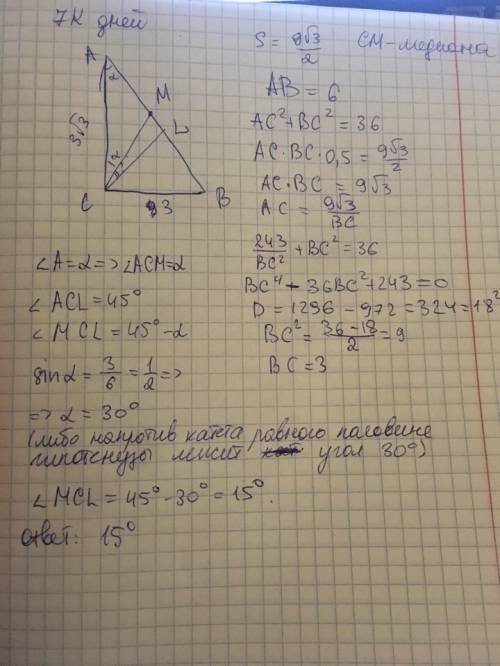 7К дней
S = 9√3/2 СМ-медиана
A
2
M
L
3√3
2
C
3
B
AB = 6
AC² + BC² = 36
AC·BC·0,5 = 9√3/2
AC·BC = 9√3
AC = 9√3/BC
243/BC² + BC² = 36
BC⁴ - 36BC² + 243 = 0
D = 1296 - 972 = 324 = 18²
BC² = (36-18)/2 = 9
BC = 3
∠A = α => ∠ACM = α
∠ACL = 45°
∠MCL = 45° - α
sin α = 3/6 = 1/2 =>
=> α = 30°
(либо напротив катета равного половине
гипотенузы лежит угол 30°)
∠MCL = 45° - 30° = 15°.
Ответ: 15°